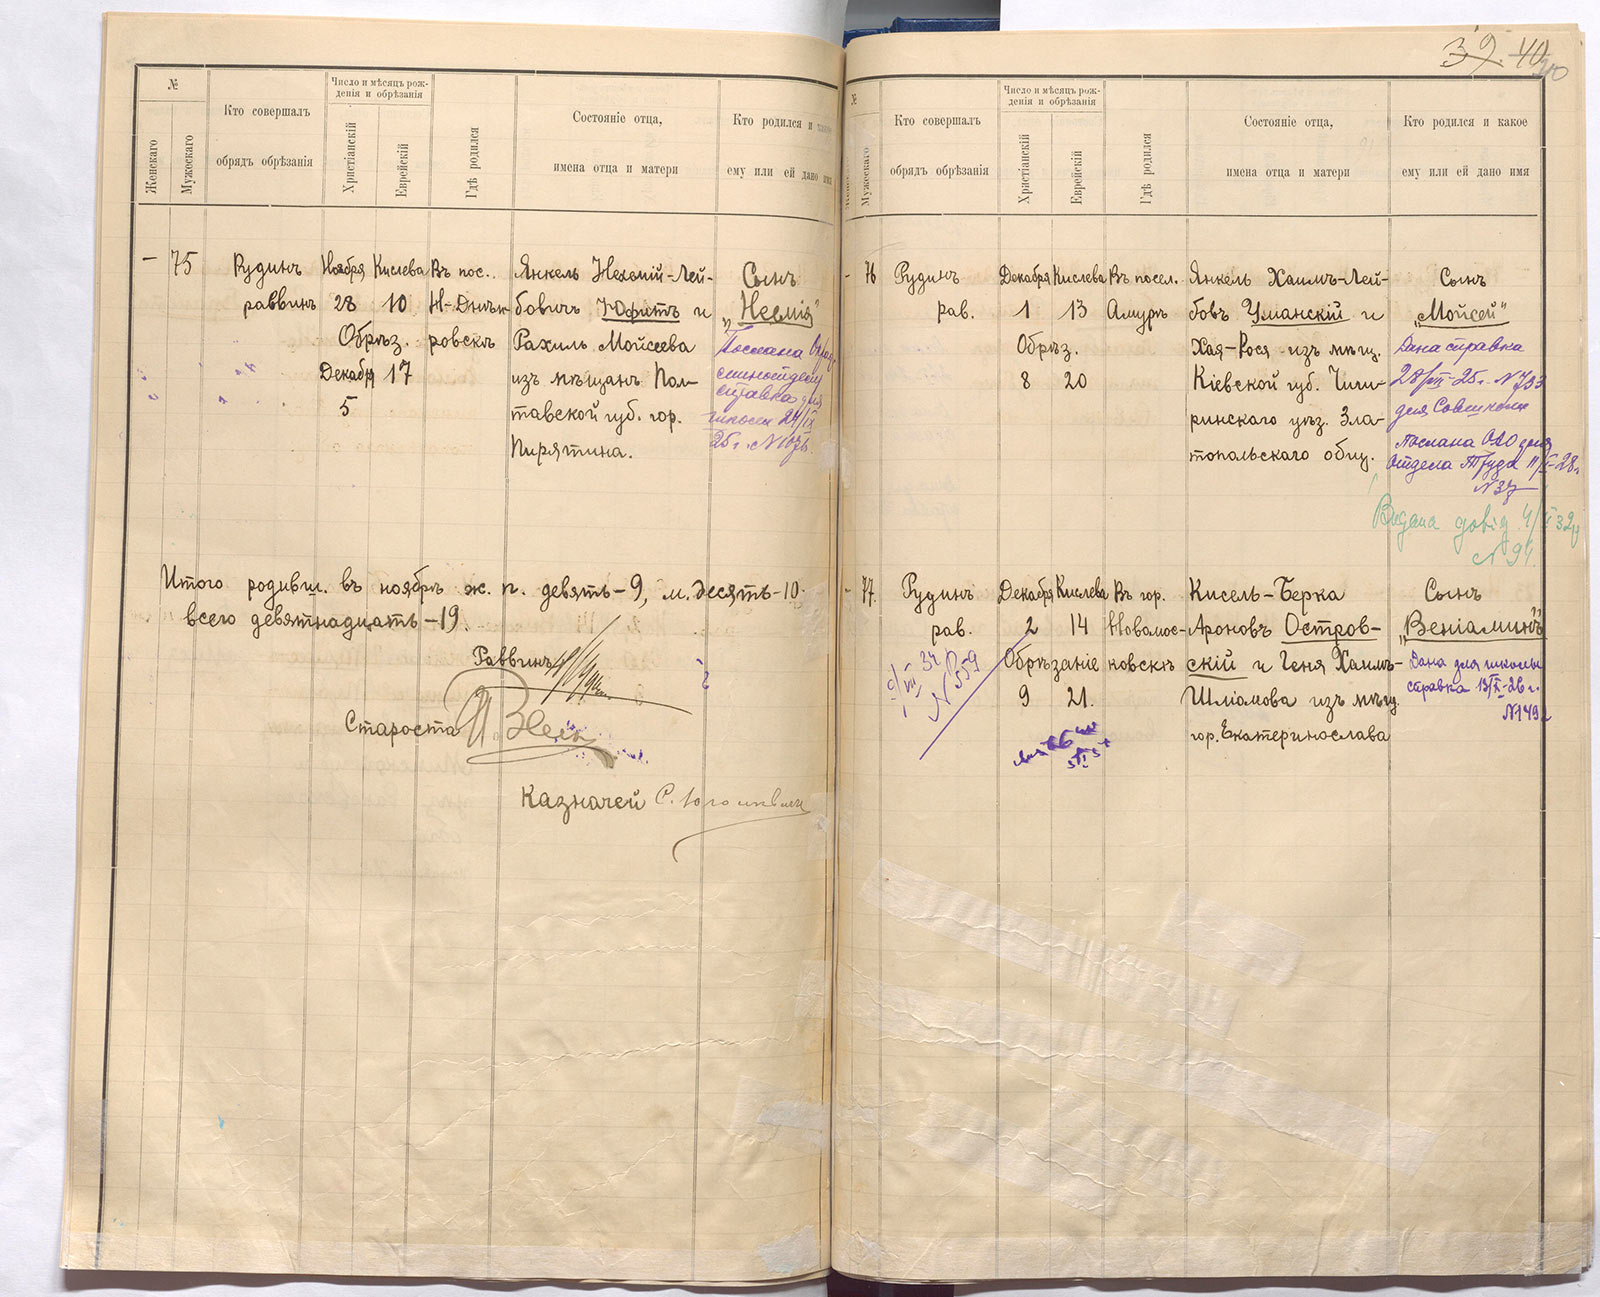 39. 40
40
№
Женскаго
Мужескаго
Кто совершалъ
обрядъ обрѣзанія
Число и мѣсяцъ рож-
денія и обрѣзанія
Христіанскій
Еврейскій
Гдѣ родился
Состояніе отца,
имена отца и матери
Кто родился и
ему или ей дано имя
— 75 Рудинъ Ноября Кислева Въ пос. Янкель Нехемій-Лей- Сынъ
раввинъ 28 10 Н-Днѣп- бовичъ Юфитъ и „Неемія"
Обрѣз. ровскъ Рахиль Мойсеева
Декабр 17 изъ мѣщанъ Пол-
5 тавской губ. гор.
Пирятина.
Послана
справка для
школы 24/IX
25 г. №
Итого родивш. въ ноябрѣ ж. п. девять-9, м. десять-10.
всего девятнадцать-19.
Раввинъ
Староста
Казначей
№
Мужескаго
Кто совершалъ
обрядъ обрѣзанія
Число и мѣсяцъ рож-
денія и обрѣзанія
Христіанскій
Еврейскій
Гдѣ родился
Состояніе отца,
имена отца и матери
Кто родился и какое
ему или ей дано имя
- 76 Рудинъ Декабря Кислева Въ посел. Янкель Хаимъ-Лей- Сынъ
рав. 1 13 Амуръ бовъ Уманскій и „Мойсей"
Обрѣз. Хая-Рося изъ мѣщ.
8 20 Кіевской губ. Чиги-
ринскаго уѣз. Зла-
топольскаго общ.
Дана справка
28/VII-25 г. № 793
для
Послана для
Отдела Труда 11/X-28 г
№ 37
Видана довід. 4/II 32 р
№ 94.
- 77. Рудинъ Декабря Кислева Въ гор. Кисель-Берка Сынъ
рав. 2 14 Новомос- Ароновъ Остров- „Веніаминъ"
Обрѣзаніе ковскъ скій и Геня Хаимъ-
9 21. Шліомова изъ мѣщ.
гор. Екатеринослава
Дана для школы
справка 13/IX-26 г.
№ 149
№ 559